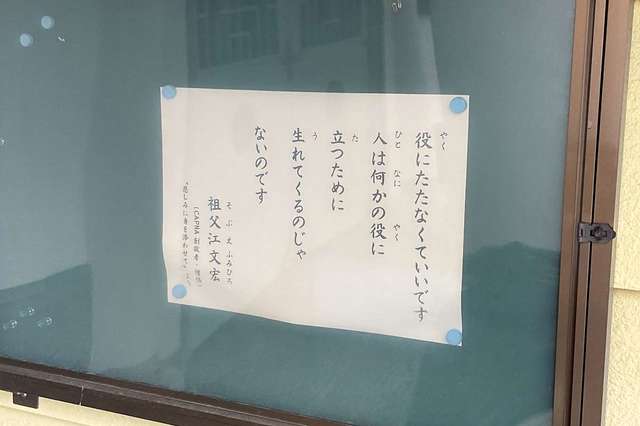 役にたたなくていいです
人は何かの役に
立つために
生れてくるのじゃ
ないのです
祖父江文宏
(CAPNA 創設者・僧侶)
『悲しみに身を添わせて』より